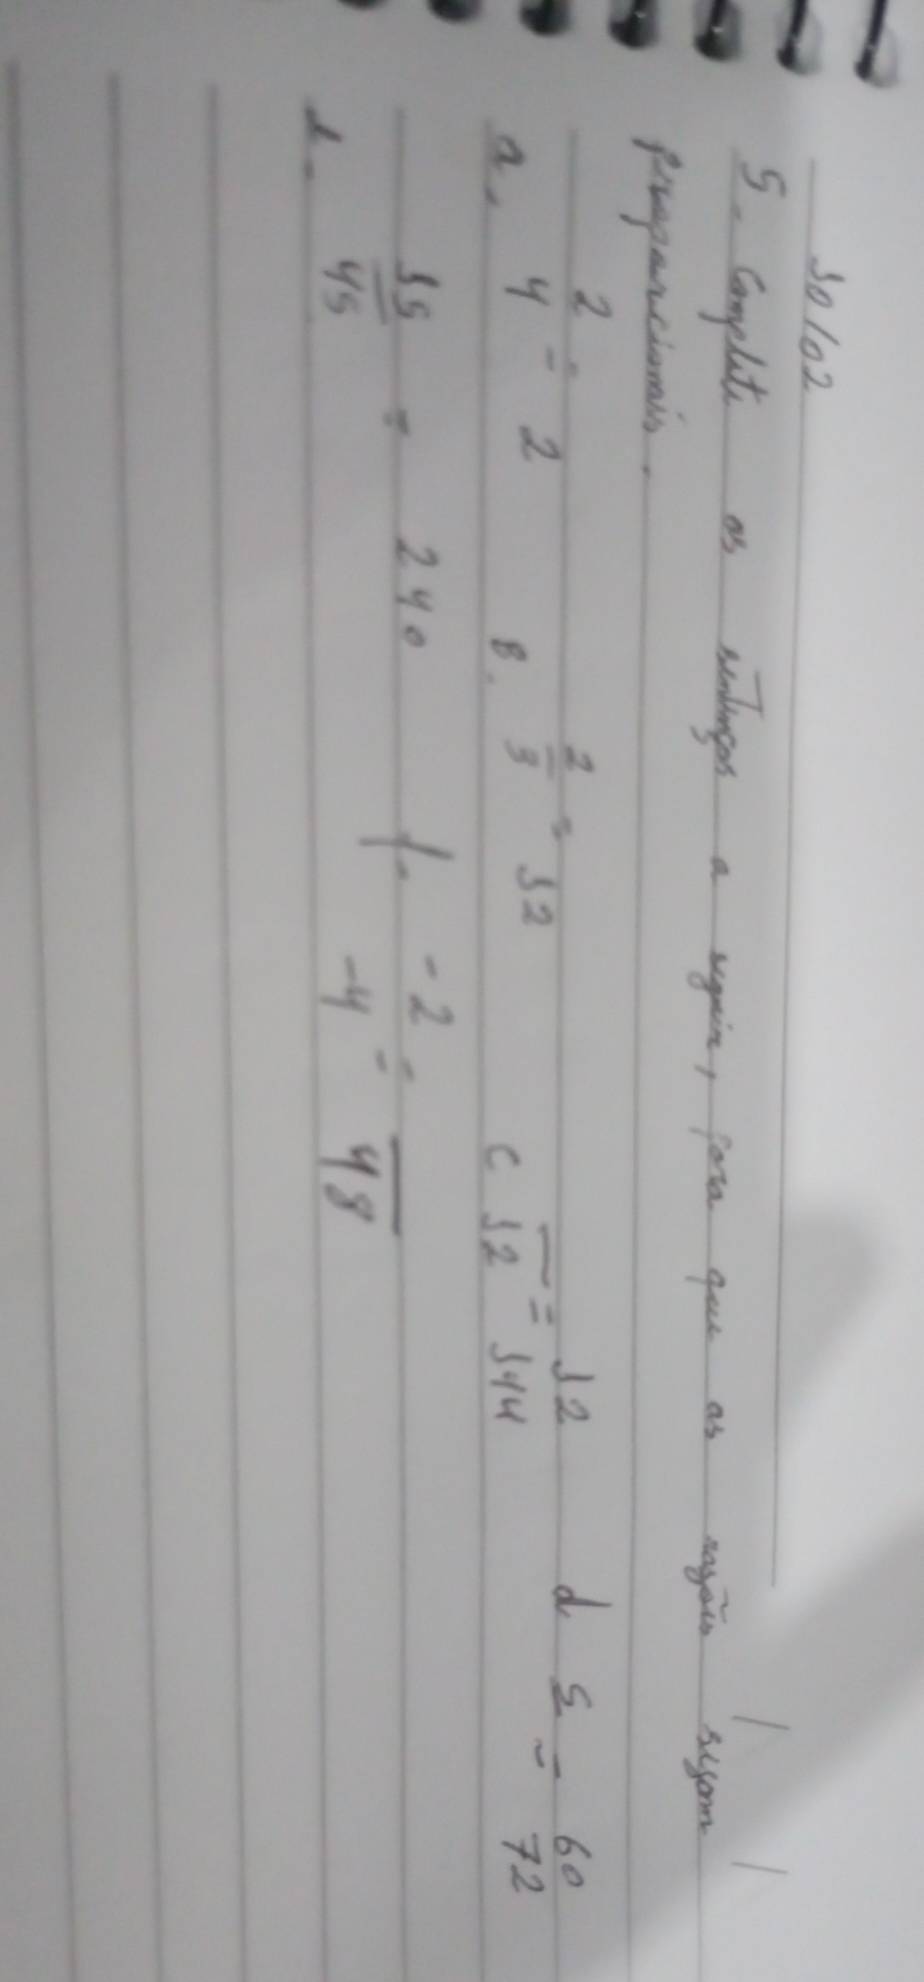 10/02
5. Complete as sentenças a seguir, para que as razões sejam
proporcionais.
a. 2/4 = /2 B. 2/3 = /12 C /12 = 12/144 d 5/ = 60/72
e. 15/45 = 240 f. -2/-4 = /48